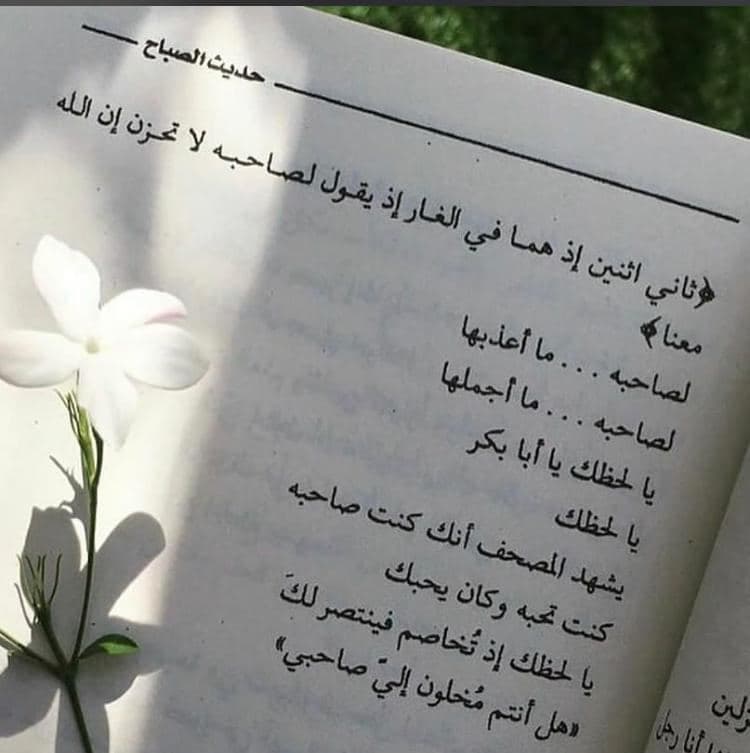 حديث الصباح
﴿ثاني اثنين إذ هما في الغار إذ يقول لصاحبه لا تحزن إن الله
معنا﴾
لصاحبه ... ما أعذبها
لصاحبه ... ما أجملها
يا لحظك يا أبا بكر
يا لحظك
يشهد المصحف أنك كنت صاحبه
كنت تحبه وكان يحبك
يا لحظك إذ تُخاصم فينتصر لكَ
«هل أنتم مُخلون إليّ صاحبي»
أنا رجل